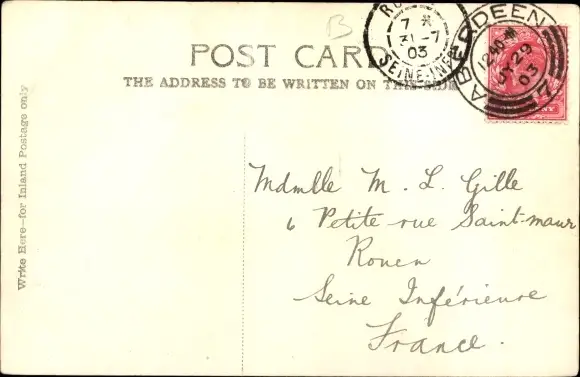 POST CAR
THE ADDRESS TO BE WRITTEN ON THIS SIDE
Write Here—for Inland Postage only
B
7
31-7
03
SEINE-INFRE
ABERDEEN
12.40
JY 29
03
Mdmlle M. L. Gille
6 Petite rue Saint-maur
Rouen
Seine Inférieure
France.